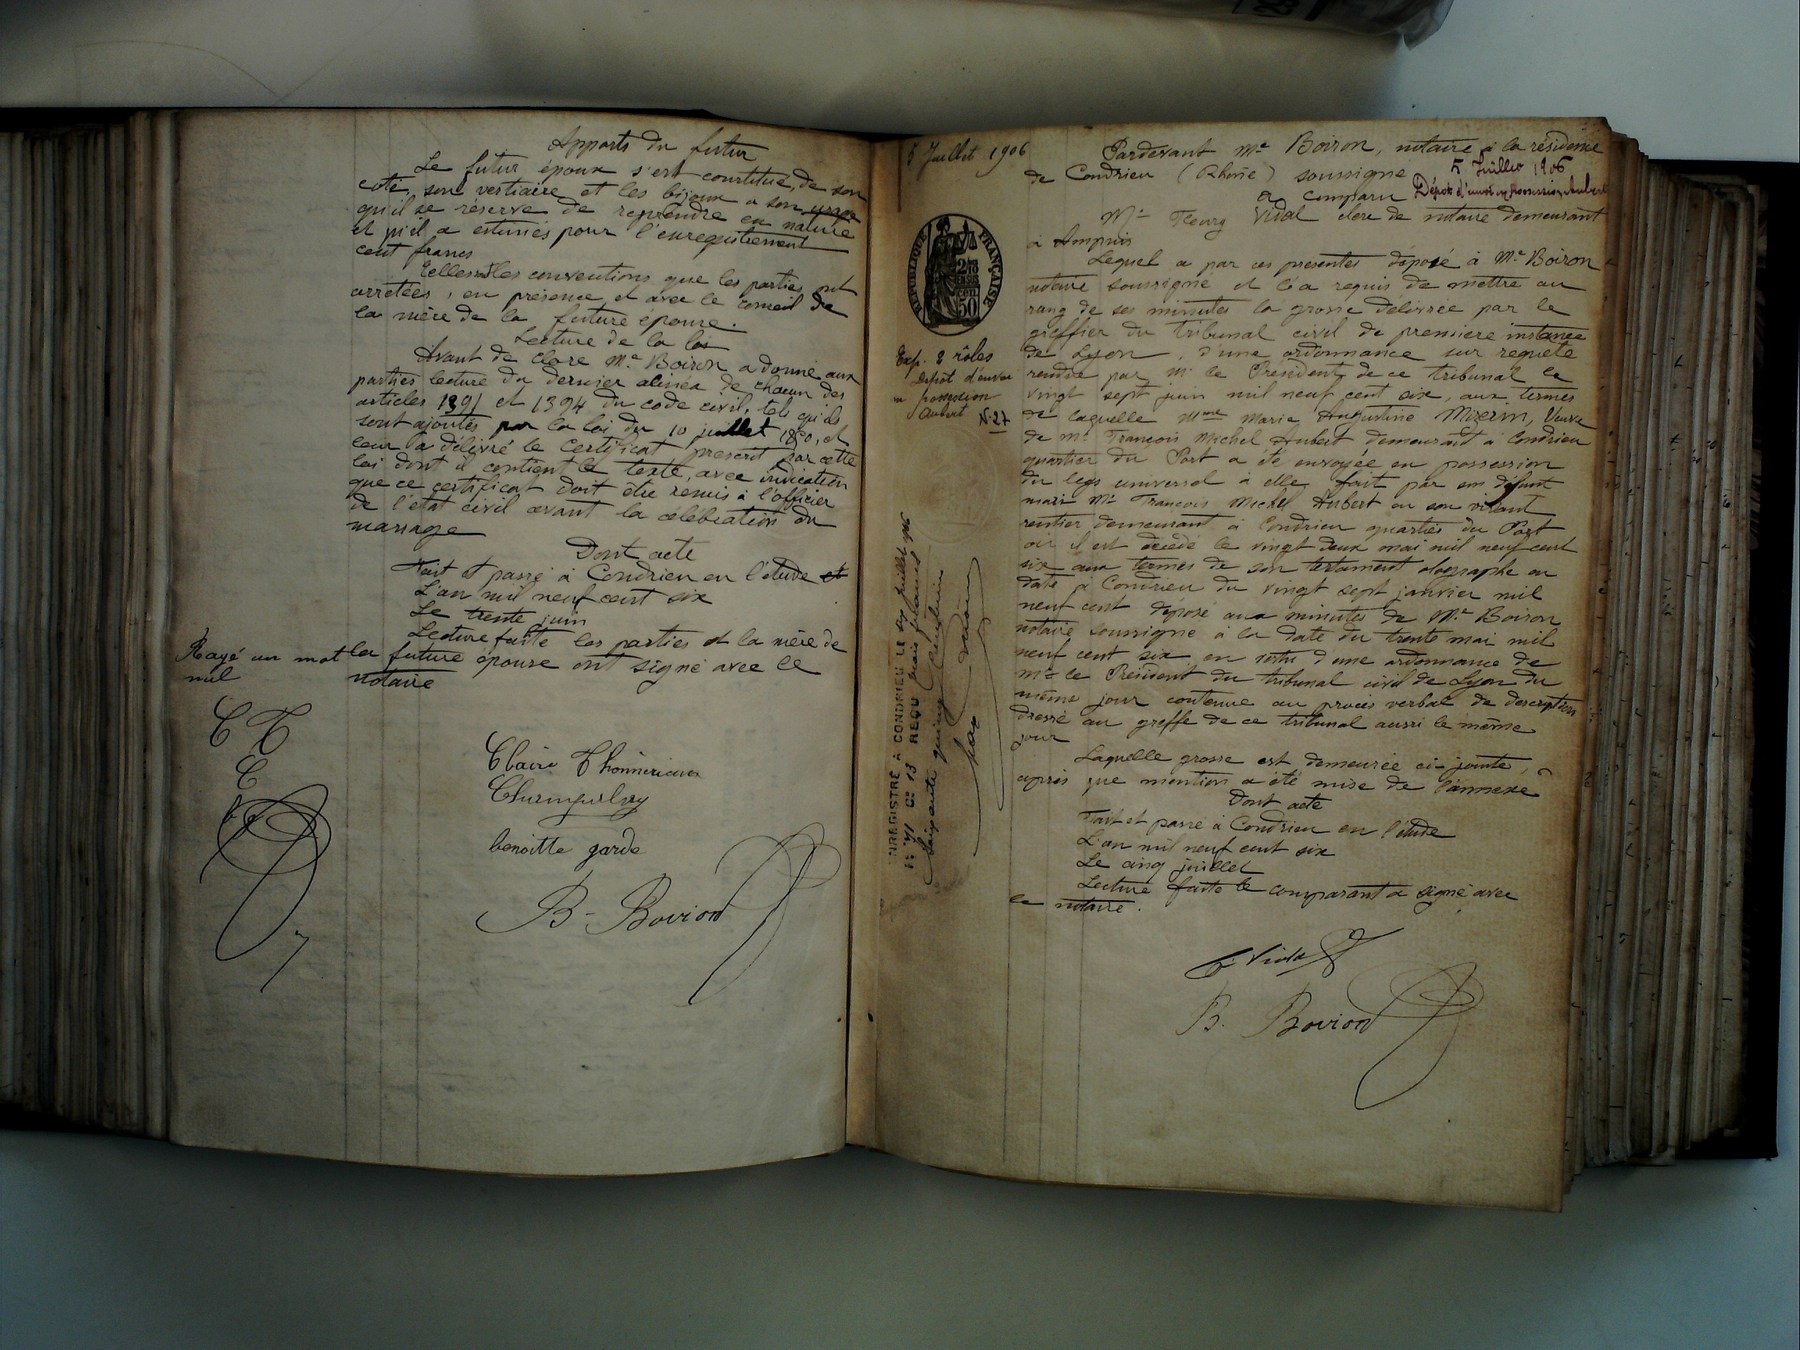 Apports du futur
Le futur époux s'est constitué, de son
coté, son vestiaire et les bijoux a son usage
qu'il se réserve de reprendre en nature
et qu'il a estimés pour l'enregistrement
cent francs
Telles sont les conventions que les parties ont
arretées, en présence et avec le conseil de
la mère de la future épouse.
Lecture de la loi
Avant de clore Me Boiron a donné aux
parties lecture du dernier alinéa de chacun des
articles 1391 et 1394 du code civil, tels qu'ils
sont ajoutés par la loi du 10 juillet 1850, et
leur a délivré le certificat prescrit par cette
loi dont il contient le texte, avec indication
que ce certificat doit être remis à l'officier
de l'état civil avant la célébration du
mariage
Dont acte
Fait et passé à Condrieu en l'étude et
L'an mil neuf cent six
Le trente juin
Lecture faite les parties et la mère de
la future épouse ont signé avec le
notaire
Rayé un mot
nul
C T
C
Claire
benoitte garde
B. Boiron
5 Juillet 1906
RÉPUBLIQUE FRANÇAISE
50
Exp. 2 rôles
Dépôt d'envoi
en possession
Aubert
N. 27
ENREGISTRÉ A CONDRIEU LE six juillet 1906
No 41 Co 13 REÇU trois francs
soixante quinze centimes
Pardevant Me Boiron, notaire à la résidence
de Condrieu (Rhône) soussigné
5 Juillet 1906
a comparu
Dépôt d'envoi en possession Aubert
Mr Fleury Vidal clerc de notaire demeurant
à Ampuis
Lequel a par ces présentes déposé à Me Boiron
notaire soussigné et l'a requis de mettre au
rang de ses minutes la grosse délivrée par le
greffier du tribunal civil de première instance
de Lyon, d'une ordonnance sur requête
rendue par Mr le Président de ce tribunal le
vingt sept juin mil neuf cent six, aux termes
de laquelle Mme Marie Augustine Veuve
de Mr François Michel Aubert demeurant à Condrieu
quartier du Port a été envoyée en possession
du legs universel à elle fait par son défunt
mari Mr François Michel Aubert en son vivant
rentier demeurant à Condrieu quartier du Port
où il est décédé le vingt deux mai mil neuf cent
six aux termes de son testament olographe en
date à Condrieu du vingt sept janvier mil
neuf cent déposé aux minutes de Me Boiron
notaire soussigné à la date du trente mai mil
neuf cent six en vertu d'une ordonnance de
Mr le Président du tribunal civil de Lyon du
même jour contenue au procès verbal de description
dressé au greffe de ce tribunal aussi le même
jour
Laquelle grosse est demeurée ci-jointe,
après que mention a été mise de l'annexe
Dont acte
Fait et passé à Condrieu en l'étude
L'an mil neuf cent six
Le cinq juillet
Lecture faite le comparant a signé avec
le notaire.
F. Vidal
B. Boiron